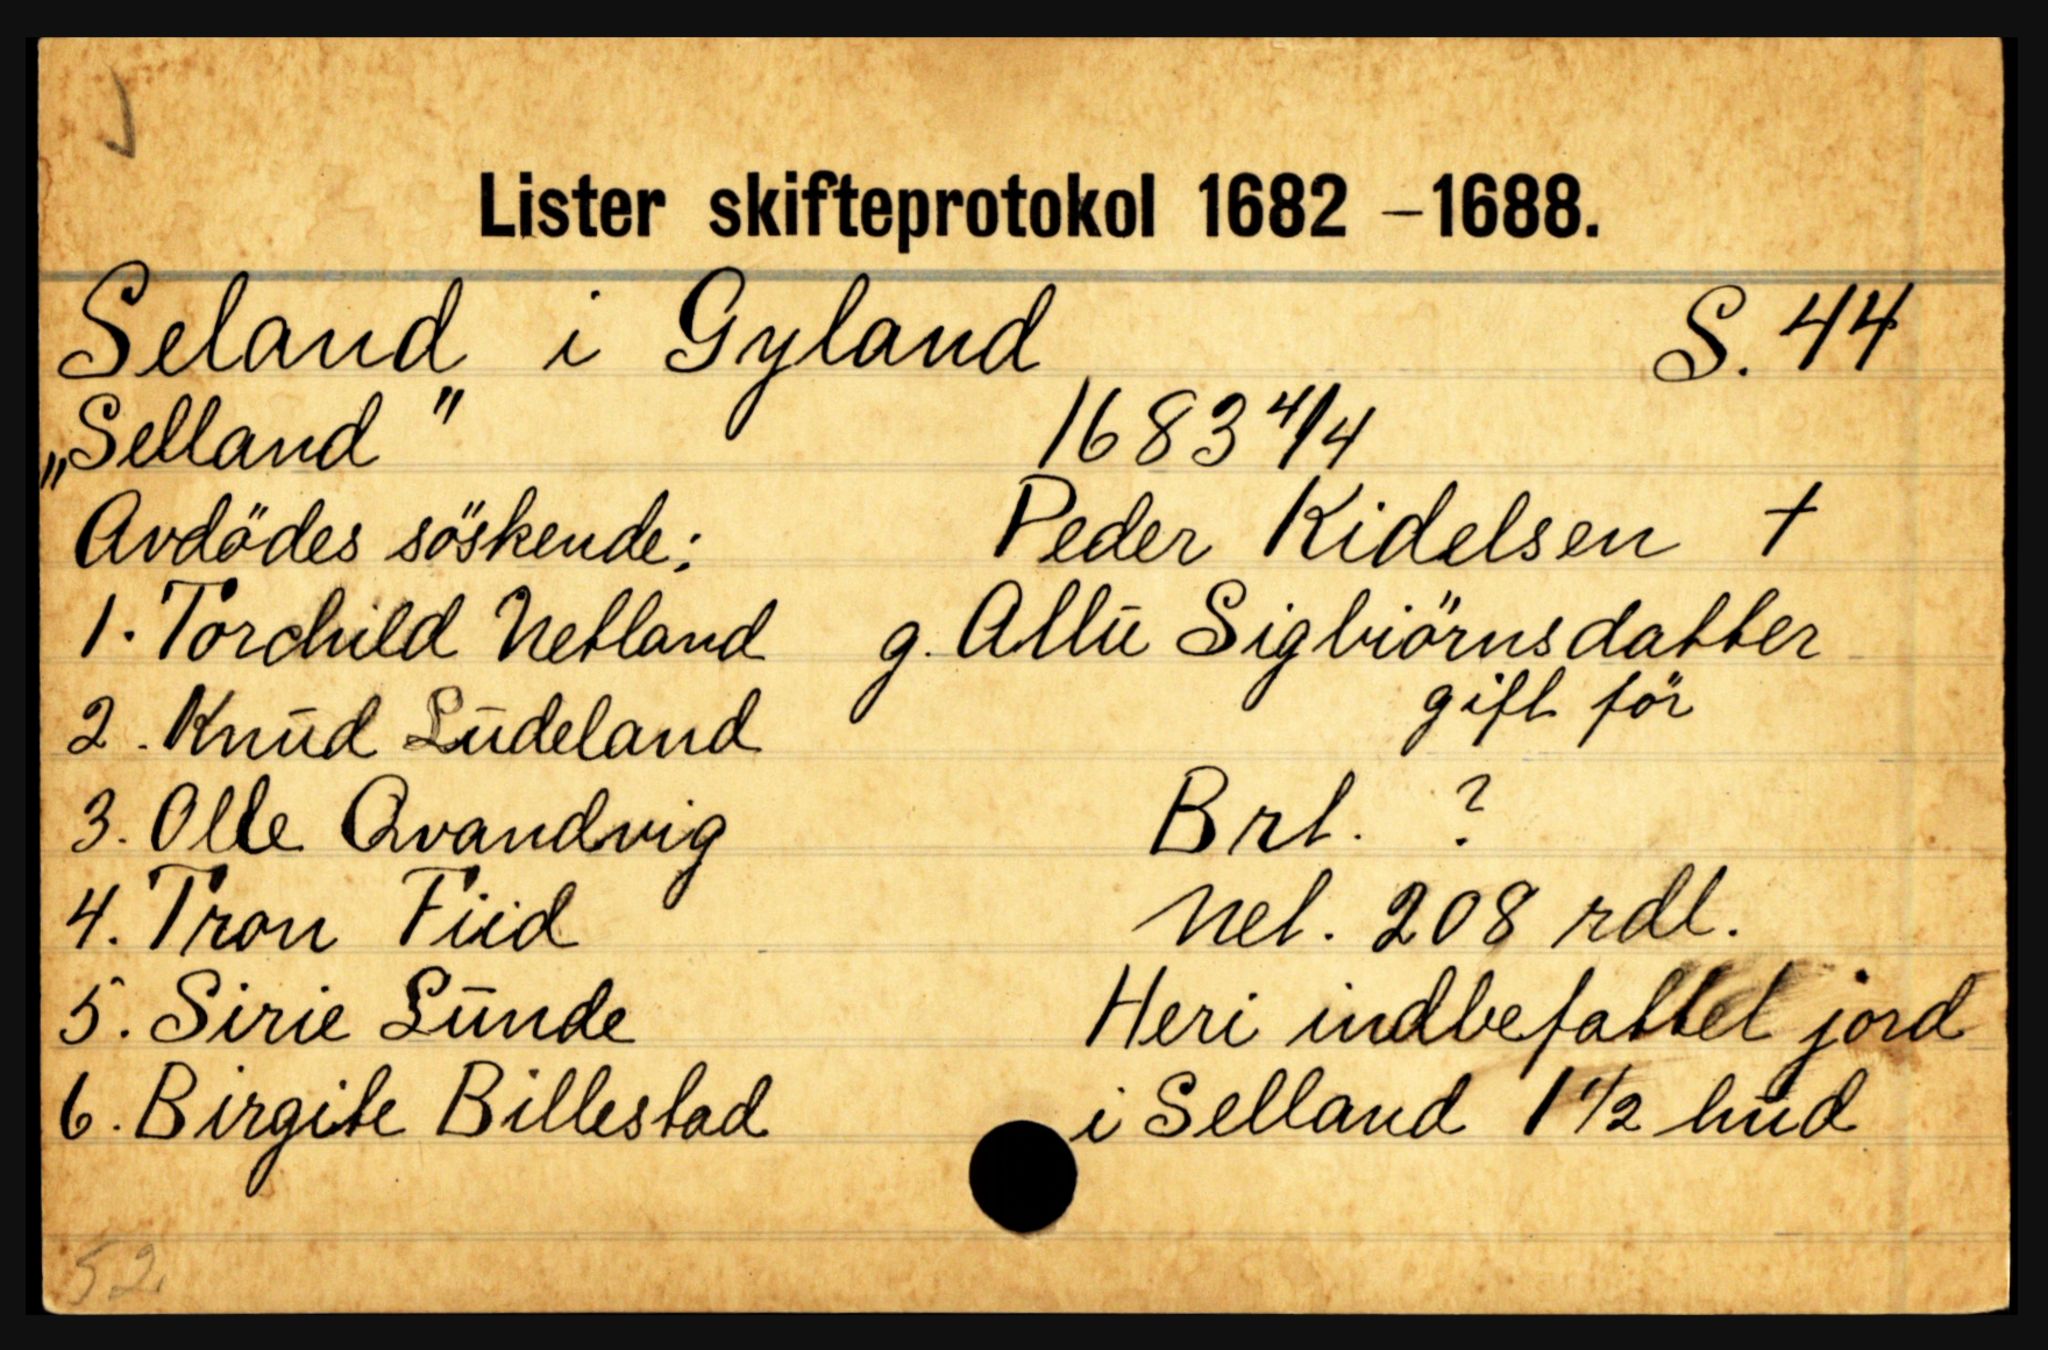 Lister skifteprotokol 1682 – 1688.
Seland i Gyland S. 44
„Selland" 1683 4/4
Avdödes söskende: Peder Kidelsen †
1. Torchild Netland g. Allū Sigbiörnsdatter
2. Knūd Lūdeland gift för
3. Olle Qvandvig Brt. ?
4. Tron Fiid Net. 208 rdl.
5. Sirie Lūnde Heri indbefattet jord
6. Birgite Billestad i Selland 1 1/2 hūd
52